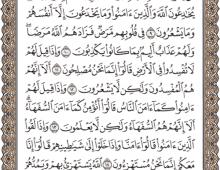 يُخَٰدِعُونَ ٱللَّهَ وَٱلَّذِينَ ءَامَنُوا۟ وَمَا يَخْدَعُونَ إِلَّآ أَنفُسَهُمْ
وَمَا يَشْعُرُونَ فِى قُلُوبِهِم مَّرَضٌ فَزَادَهُمُ ٱللَّهُ مَرَضًا
وَلَهُمْ عَذَابٌ أَلِيمٌۢ بِمَا كَانُوا۟ يَكْذِبُونَ وَإِذَا قِيلَ لَهُمْ
لَا تُفْسِدُوا۟ فِى ٱلْأَرْضِ قَالُوٓا۟ إِنَّمَا نَحْنُ مُصْلِحُونَ
أَلَآ إِنَّهُمْ هُمُ ٱلْمُفْسِدُونَ وَلَٰكِن لَّا يَشْعُرُونَ وَإِذَا قِيلَ لَهُمْ
ءَامِنُوا۟ كَمَآ ءَامَنَ ٱلنَّاسُ قَالُوٓا۟ أَنُؤْمِنُ كَمَآ ءَامَنَ ٱلسُّفَهَآءُ
أَلَآ إِنَّهُمْ هُمُ ٱلسُّفَهَآءُ وَلَٰكِن لَّا يَعْلَمُونَ وَإِذَا لَقُوا۟
ٱلَّذِينَ ءَامَنُوا۟ قَالُوٓا۟ ءَامَنَّا وَإِذَا خَلَوْا۟ إِلَىٰ شَيَٰطِينِهِمْ قَالُوٓا۟ إِنَّا
مَعَكُمْ إِنَّمَا نَحْنُ مُسْتَهْزِءُونَ ٱللَّهُ يَسْتَهْزِئُ بِهِمْ وَيَمُدُّهُمْ